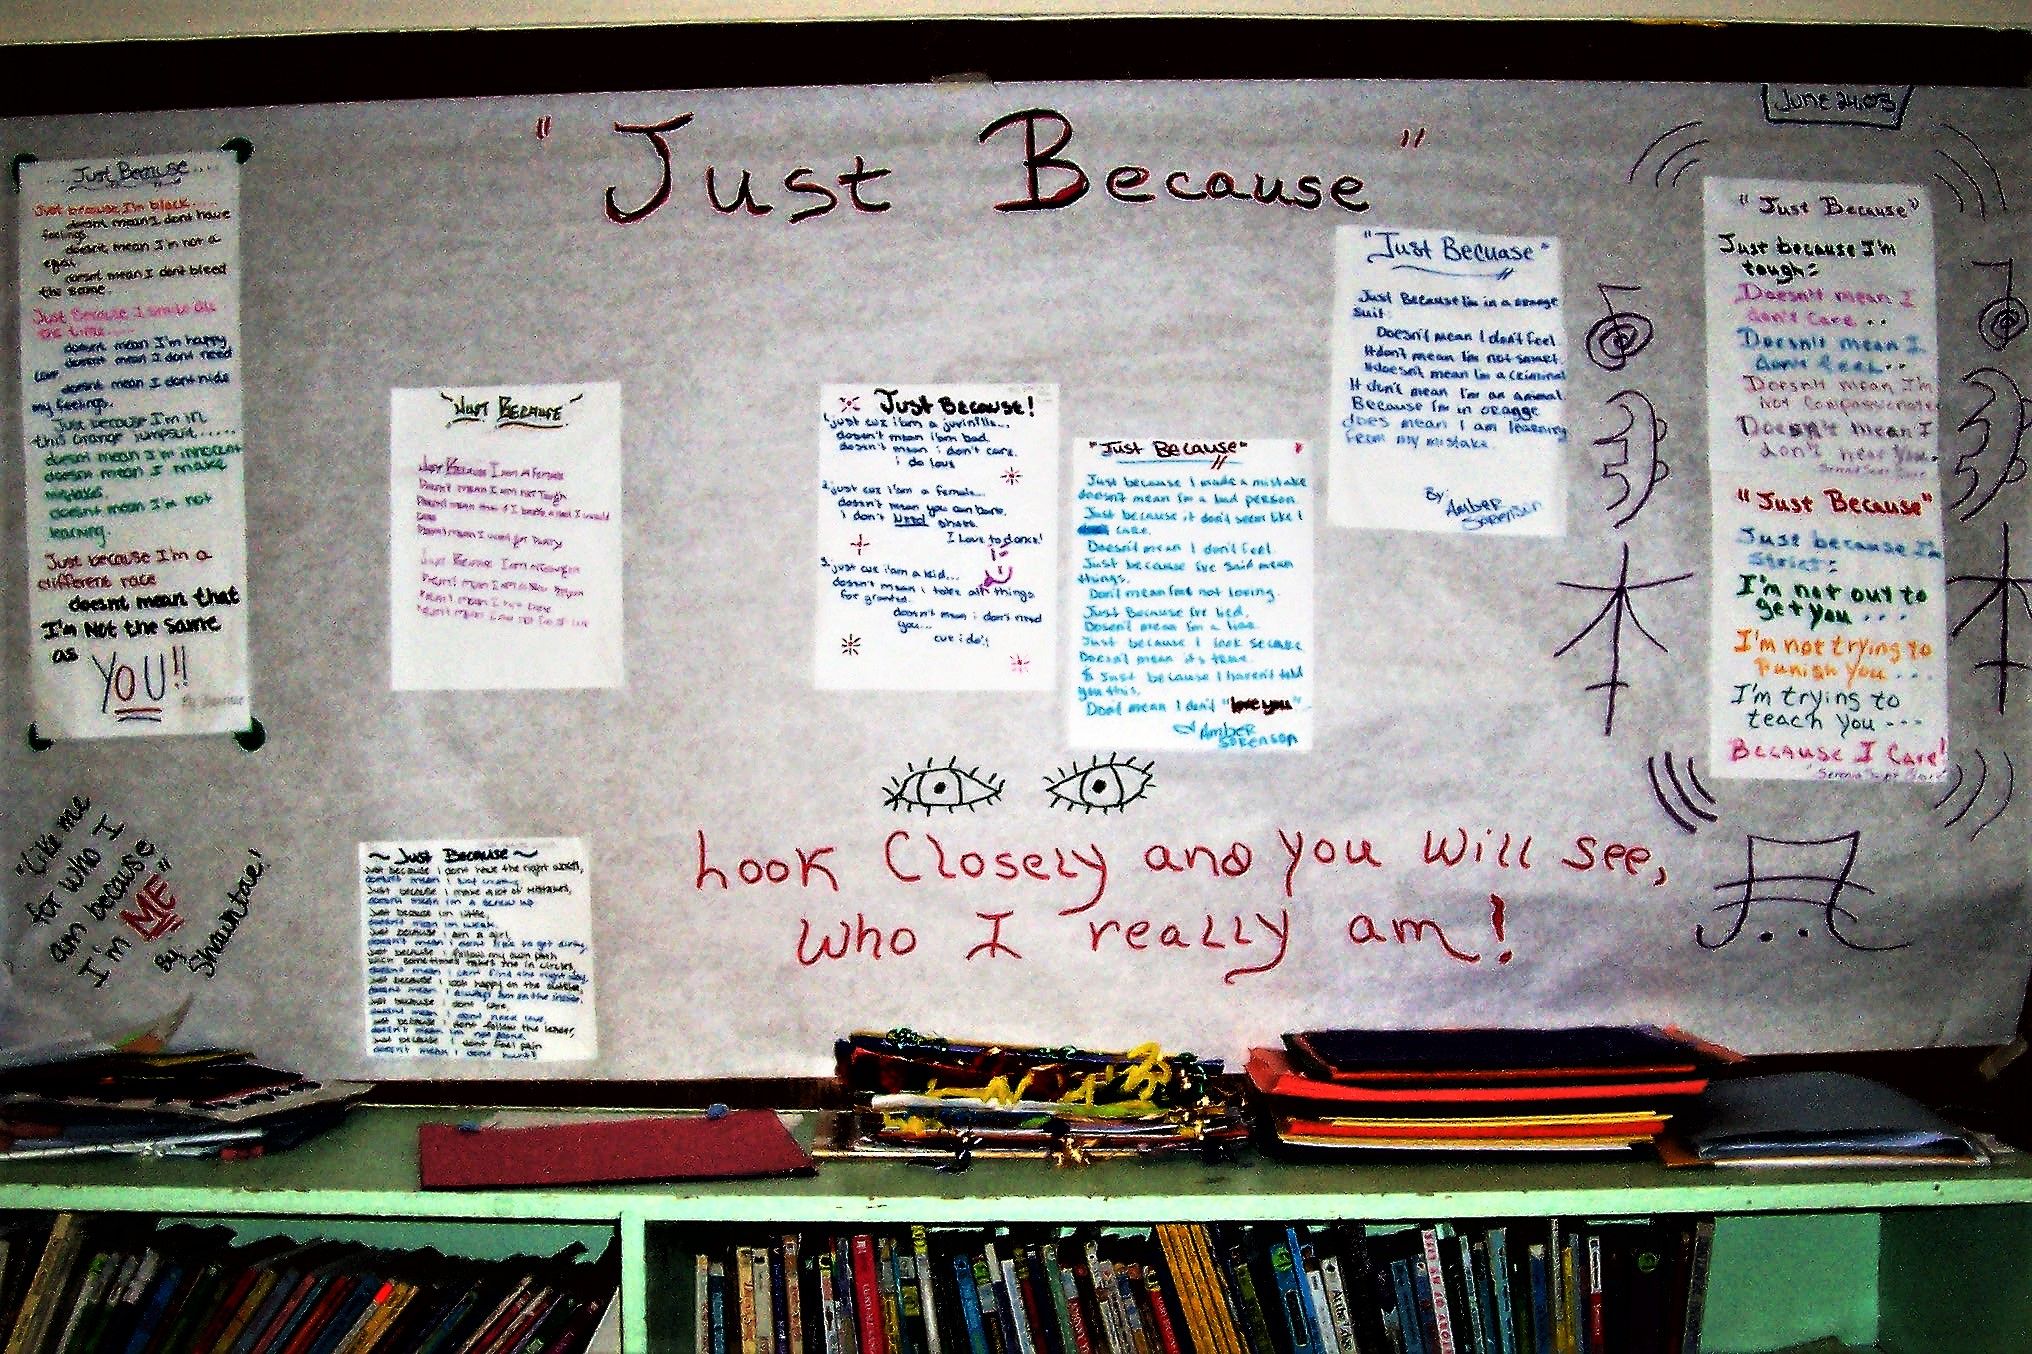 "Just Because"
June 24.03
Just Because.....
Just because I'm black.....
doesnt mean I dont have
feelings
doesnt mean I'm not a
doesnt mean I dont bleed
the same.
Just Because I smile all
the time.....
doesnt mean I'm happy
doesnt mean I dont need
love
doesnt mean I dont hide
my feelings.
Just because I'm in
this orange jumpsuit.....
doesnt mean I'm innocent
doesnt mean I make
mistakes.
doesnt mean I'm not
learning.
Just because I'm a
different race
doesnt mean that
I'm Not the same
as YOU!!
"Like me
for who I
am because
I'm ME"
By
Shawntae!
"Just Because"
Just Because I am a Female
Doesn't mean I am not Tough
~ Just Because ~
Just because i dont have the right words,
Just because i make alot of mistakes,
doesnt mean im a screw up
Just because im little,
doesnt mean im weak.
Just because i am a girl,
doesn't mean i dont like to get dirty,
Just because i follow my own path
which sometimes takes me in circles,
doesnt mean i cant find the right way,
Just because i look happy on the outside,
doesnt mean i always am on the inside.
Just because i dont care,
doesnt mean i dont need love,
Just because i dont follow the leader,
doesn't mean im not alone.
Just because i dont feel pain
doesn't mean i dont hurt!
Just Because!
1. just cuz i am a juvinille...
doesn't mean i am bad.
doesn't mean i don't care.
i do love
2. just cuz i am a female...
doesn't mean you can bare.
i don't NEED
I Love to dance!
3. just cuz i am a kid...
doesn't mean i take all things
for granted.
doesn't mean i don't need
you...
cuz i do!!
"Just Because"
Just because I made a mistake
doesn't mean I'm a bad person.
Just because it don't seem like I
care.
Doesn't mean I don't feel.
Just because I've said mean
things.
Don't mean I'm not loving.
Just Because I've lied.
Doesn't mean I'm a liar.
Just because I look
Doesn't mean its true.
& Just because I haven't told
you this.
Don't mean I don't "love you"
Amber
Sorenson
"Just Becuase"
Just Because I'm in a orange
suit:
Doesn't mean I don't feel
It don't mean I'm not smart.
It doesn't mean I'm a criminal
It don't mean I'm an animal.
Because I'm in oragge
does mean I am learning
from my mistake.
By: Amber
Sorenson
"Just Because"
Just because I'm
tough:
Doesn't mean I
don't care ..
Doesn't mean I
don't feel..
Doesn't mean I'm
Not Compassionate
Doesn't mean I
don't hear you.
"Just Because"
Just because I'm
strict:
I'm not out to
get you ...
I'm not trying to
Punish you ...
I'm trying to
teach you ---
Because I Care!
Look Closely and you will see,
who I really am!